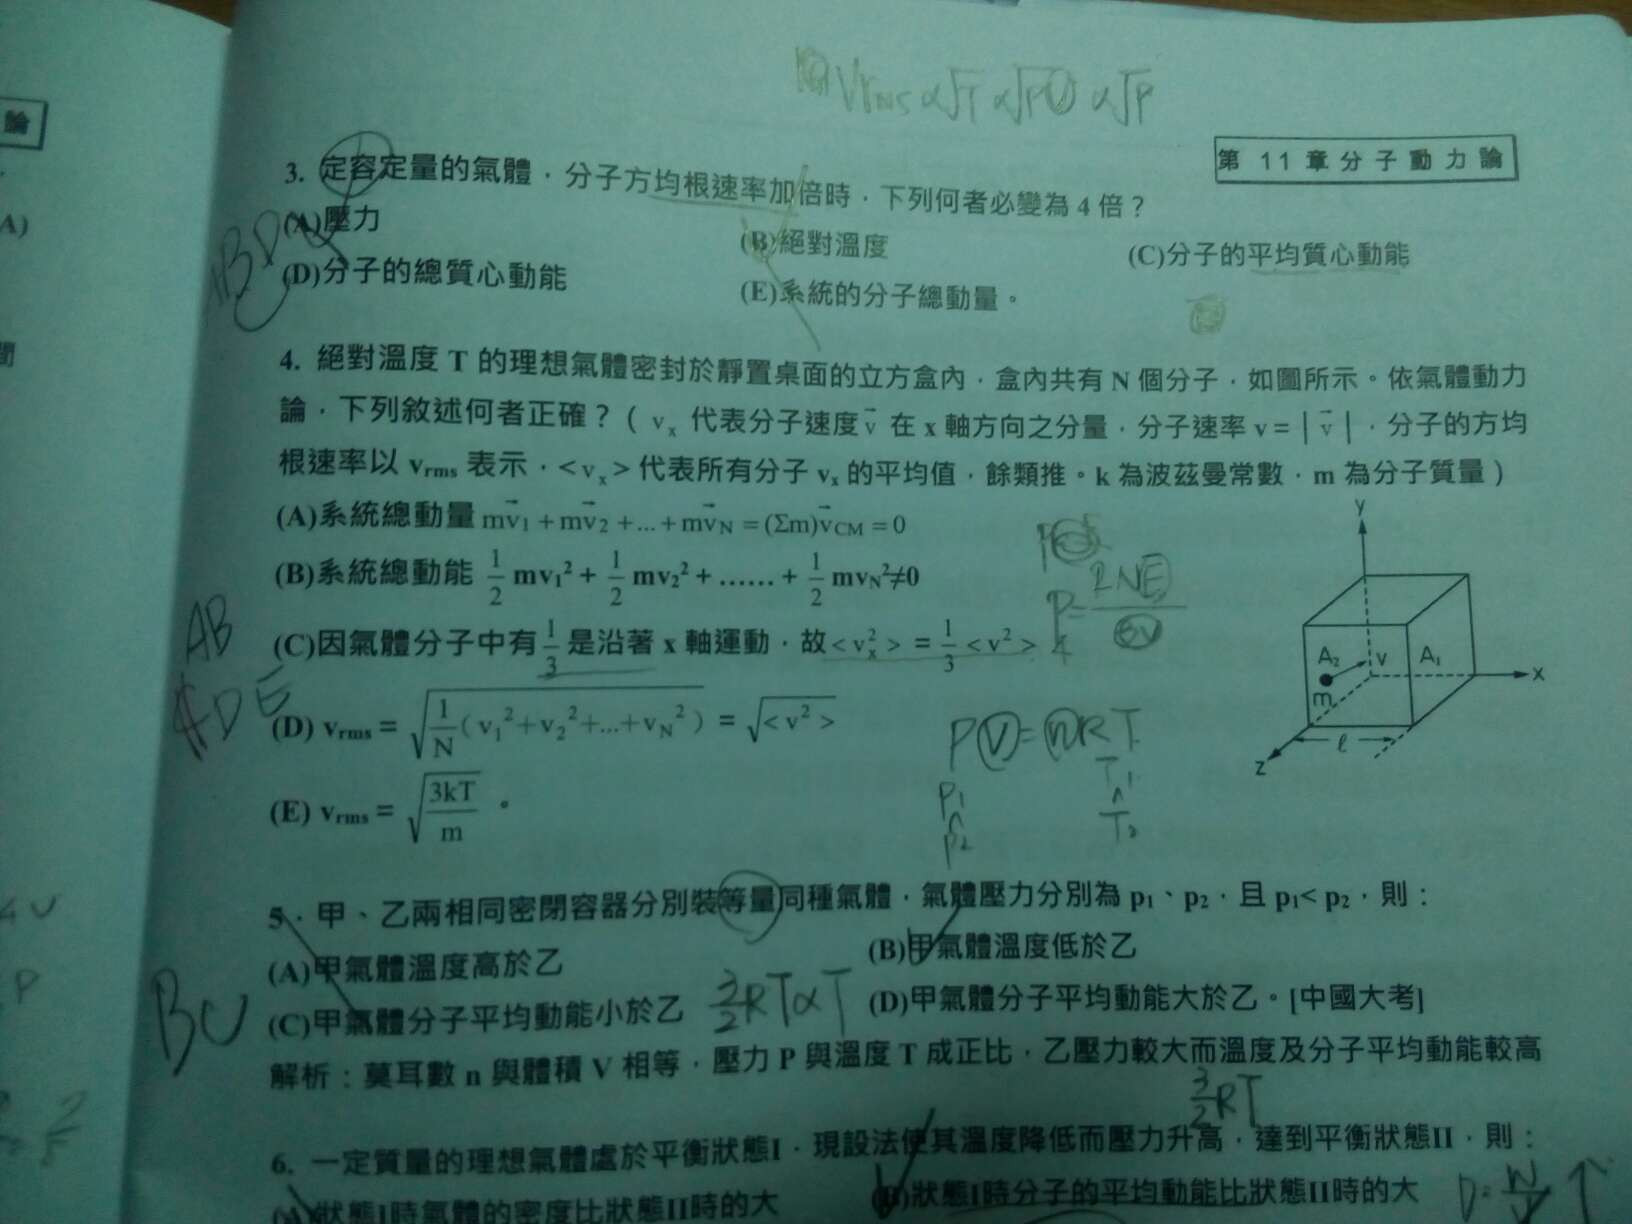 Vrms α√T α√PV α√P
第 11 章分子動力論
論
3. 定容定量的氣體，分子方均根速率加倍時，下列何者必變為 4 倍？
(A)壓力
(B)絕對溫度
(C)分子的平均質心動能
(D)分子的總質心動能
(E)系統的分子總動量。
4. 絕對溫度 T 的理想氣體密封於靜置桌面的立方盒內，盒內共有 N 個分子，如圖所示。依氣體動力
論，下列敘述何者正確？（ vₓ 代表分子速度 v⃗ 在 x 軸方向之分量，分子速率 v = | v⃗ |，分子的方均
根速率以 vrms 表示，<vₓ> 代表所有分子 vₓ 的平均值，餘類推。k 為波茲曼常數，m 為分子質量）
(A)系統總動量 mv⃗1 + mv⃗2 +...+ mv⃗N = (Σm)v⃗CM = 0
(B)系統總動能 1/2 mv₁² + 1/2 mv₂² + …… + 1/2 mvN²≠0
(C)因氣體分子中有 1/3 是沿著 x 軸運動，故 < vₓ² > = 1/3 < v² >
AB
DE
(D) vrms = √(1/N ( v₁² + v₂² +...+ vN² )) = √< v² >
(E) vrms = √(3kT/m) 。
y
A₂
v
A₁
x
m
ℓ
z
P = 2NE
PV = nRT
P1
P2
T1
T2
5. 甲、乙兩相同密閉容器分別裝等量同種氣體，氣體壓力分別為 p₁、p₂，且 p₁< p₂，則：
(A)甲氣體溫度高於乙
(B)甲氣體溫度低於乙
(C)甲氣體分子平均動能小於乙
3/2 RT α T
(D)甲氣體分子平均動能大於乙。[中國大考]
BC
解析：莫耳數 n 與體積 V 相等，壓力 P 與溫度 T 成正比，乙壓力較大而溫度及分子平均動能較高
3/2 RT
6. 一定質量的理想氣體處於平衡狀態I，現設法使其溫度降低而壓力升高，達到平衡狀態II，則：
(A)狀態I時氣體的密度比狀態II時的大
(B)狀態I時分子的平均動能比狀態II時的大